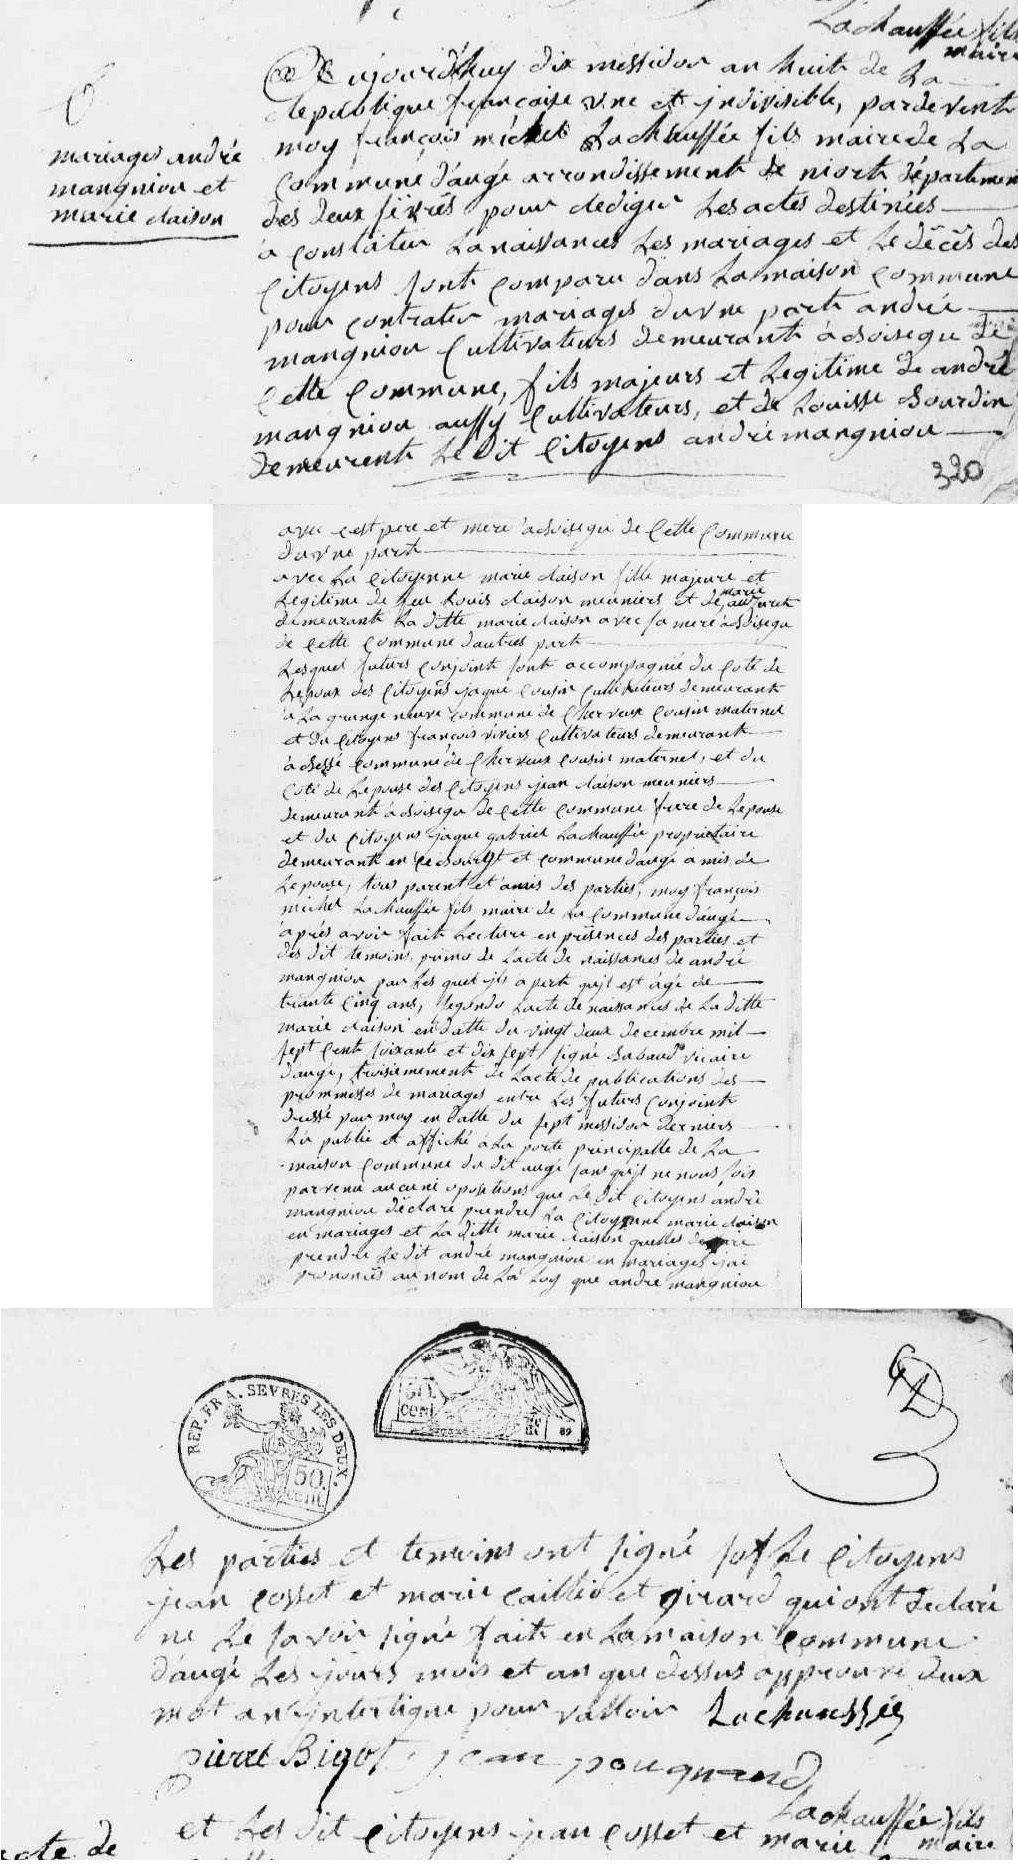 Lachauffée fils
maire
6
mariages andré
mangniou et
marie claison
Aujourd'huy dix messidor an huit de La
Republique françoise vne et jndivisible, pardevent
moy françois michel Lachauffée fils maire de La
Commune d'augé arrondissement de niort département
des deux sèvrés pour rediger Les actes destinées
a constater La naissances Les mariages et Le décès des
Citoyens sont comparu dans La maison commune
pour contrater mariages duvne part andrée
mangniou Cultivateurs demeurant à de
Cette Commune, fils majeurs et Legitime de andré
mangniou aussy Cultivateurs, et de Louisse Bourdin
demeurent Le dit Citoyens andré mangniou
320
avec cest pere et mere à de Cette Commune
duvne part
avec La Citoyenne marie claison fille majeure et
Legitime de feu Louis claison meuniers et de marie
demeurant La ditte marie claison avec sa mere à
de Cette Commune d'autres part
Lesquel futurs Conjoint sont accompagnée du Coté de
Lepoux des Citoyens jaque Cousin Cultivateurs demeurant
à La grange neuve commune de Cherveux Cousin maternel
et du Citoyens françois riviers Cultivateurs demeurant
à commune de Cherveux cousin maternel, et du
Coté de Lepouse des Citoyens jean claison meuniers
demeurant à de Cette Commune frere de Lepouse
et du Citoyens jaque gabriel Lachauffée proprietaire
demeurant en Ce Bourgt et commune d'augé amis de
Lepouse, tous parent et amis des parties, moy françois
michel Lachauffée fils maire de La commune d'augé
après avoir fait Lecture en présences des parties et
des dit temoins, primo de Lacte de naissances de andré
mangniou par Les quel jls apert qujl est àgé de
trante Cinq ans, segondo Lacte de naissances de La ditte
marie claison en datte du vingt deux decembre mil
sept Cent soixante et dix sept signé vicaire
d'augé, troisiemement de Lacte de publications des
prommesses de mariages entre Les futurs Conjoint
dressé par moy en datte du sept messidor derniers
Lu publié et affiché à La porte principalle de La
maison Commune du dit augé sans qujl ne nous sois
parvenu aucune opositions que Le dit Citoyens andré
mangniou déclaré prendre La Citoyenne marie claison
en mariages et La ditte marie claison quelles declare
prendre Le dit andré mangniou en mariages jai
prononcés au nom de La Loy que andre mangniou
REP. FRA. SEVRES LES DEUX.
50 cent
50 cent
Les parties et temoins ont signé sof Le Citoyens
jean cosset et marie caillié et Girard qui ont declaré
ne Le savoir signé fait en La maison Commune
d'augé Les jours mois et an que dessus approuvé deux
mot an jnterligne pour valloir Lachaussée
pierre Bigot jean pougnand
Lachauffée fils
maire
et Les dit Citoyens jean Cosset et marie
acte de